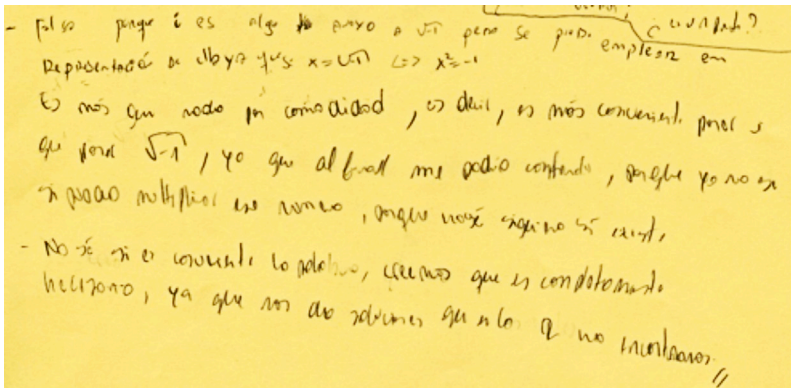 ¿cuándo?
- Falso porque i es algo a √-1 pero se puede emplear en
Representación de ello ya que si x=√-1 <=> x²=-1
Es más que nada por comodidad, es decir, es más conveniente poner i
que poner √-1, ya que al final me podía, porque yo no sé
si puedo multiplicar ese número, porque no sé siquiera si existe
- No sé si es conveniente la palabra, creemos que es completamente
necesario, ya que nos da soluciones que en los R no encontramos //